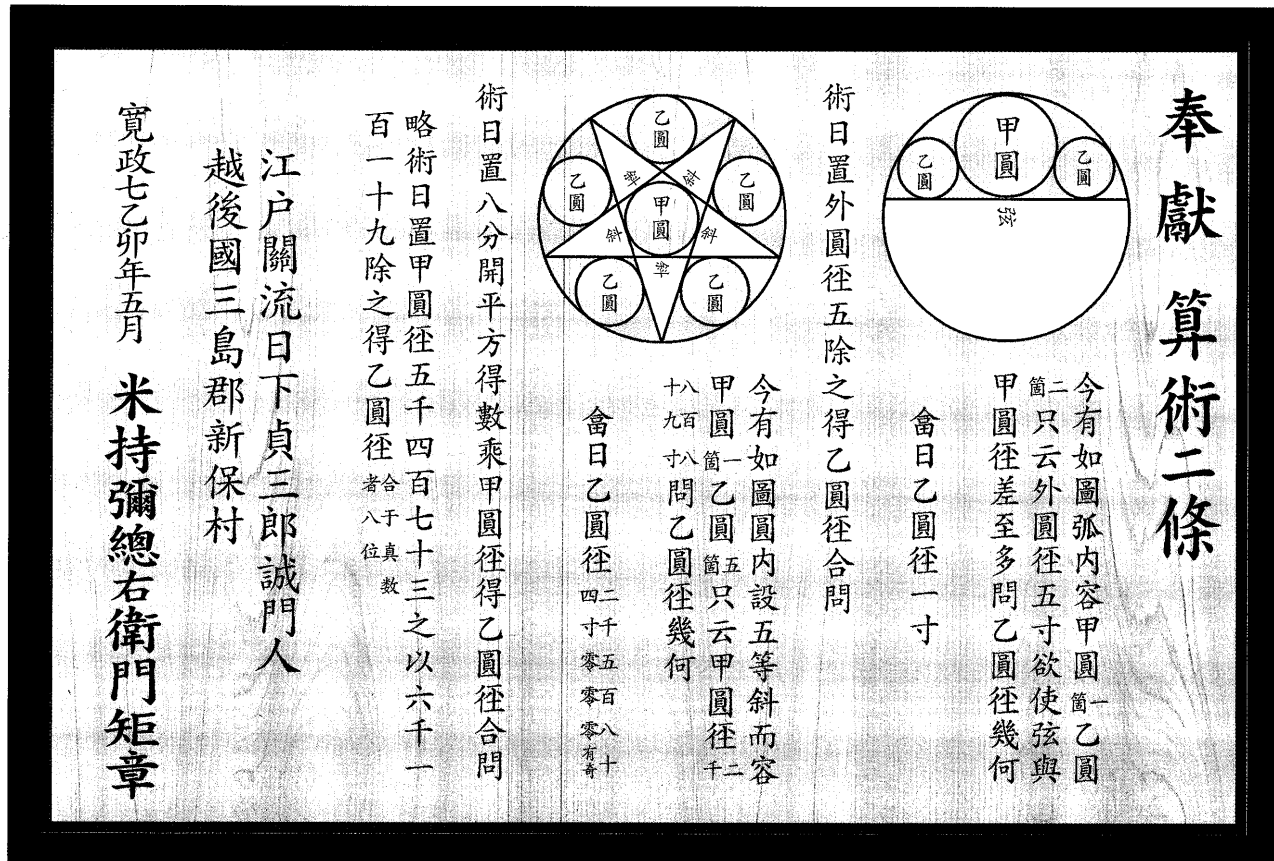 奉獻算術二條
甲圓
乙圓
乙圓
弦
今有如圖弧内容甲圓一箇乙圓
二箇只云外圓径五寸欲使弦與
甲圓径差至多問乙圓径幾何
畣曰乙圓径一寸
術曰置外圓径五除之得乙圓径合問
乙圓
乙圓
乙圓
甲圓
乙圓
乙圓
斜
斜
斜
斜
斜
今有如圖圓内設五等斜而容
甲圓一箇乙圓五箇只云甲圓径二千
八百八十九寸問乙圓径幾何
畣曰乙圓径二千五百八十四寸零零零有奇
術曰置八分開平方得數乘甲圓径得乙圓径合問
略術曰置甲圓径五千四百七十三之以六千一
百一十九除之得乙圓径合于真数者八位
江戸關流日下貞三郎誠門人
越後國三島郡新保村
寛政七乙卯年五月 米持彌總右衛門矩章